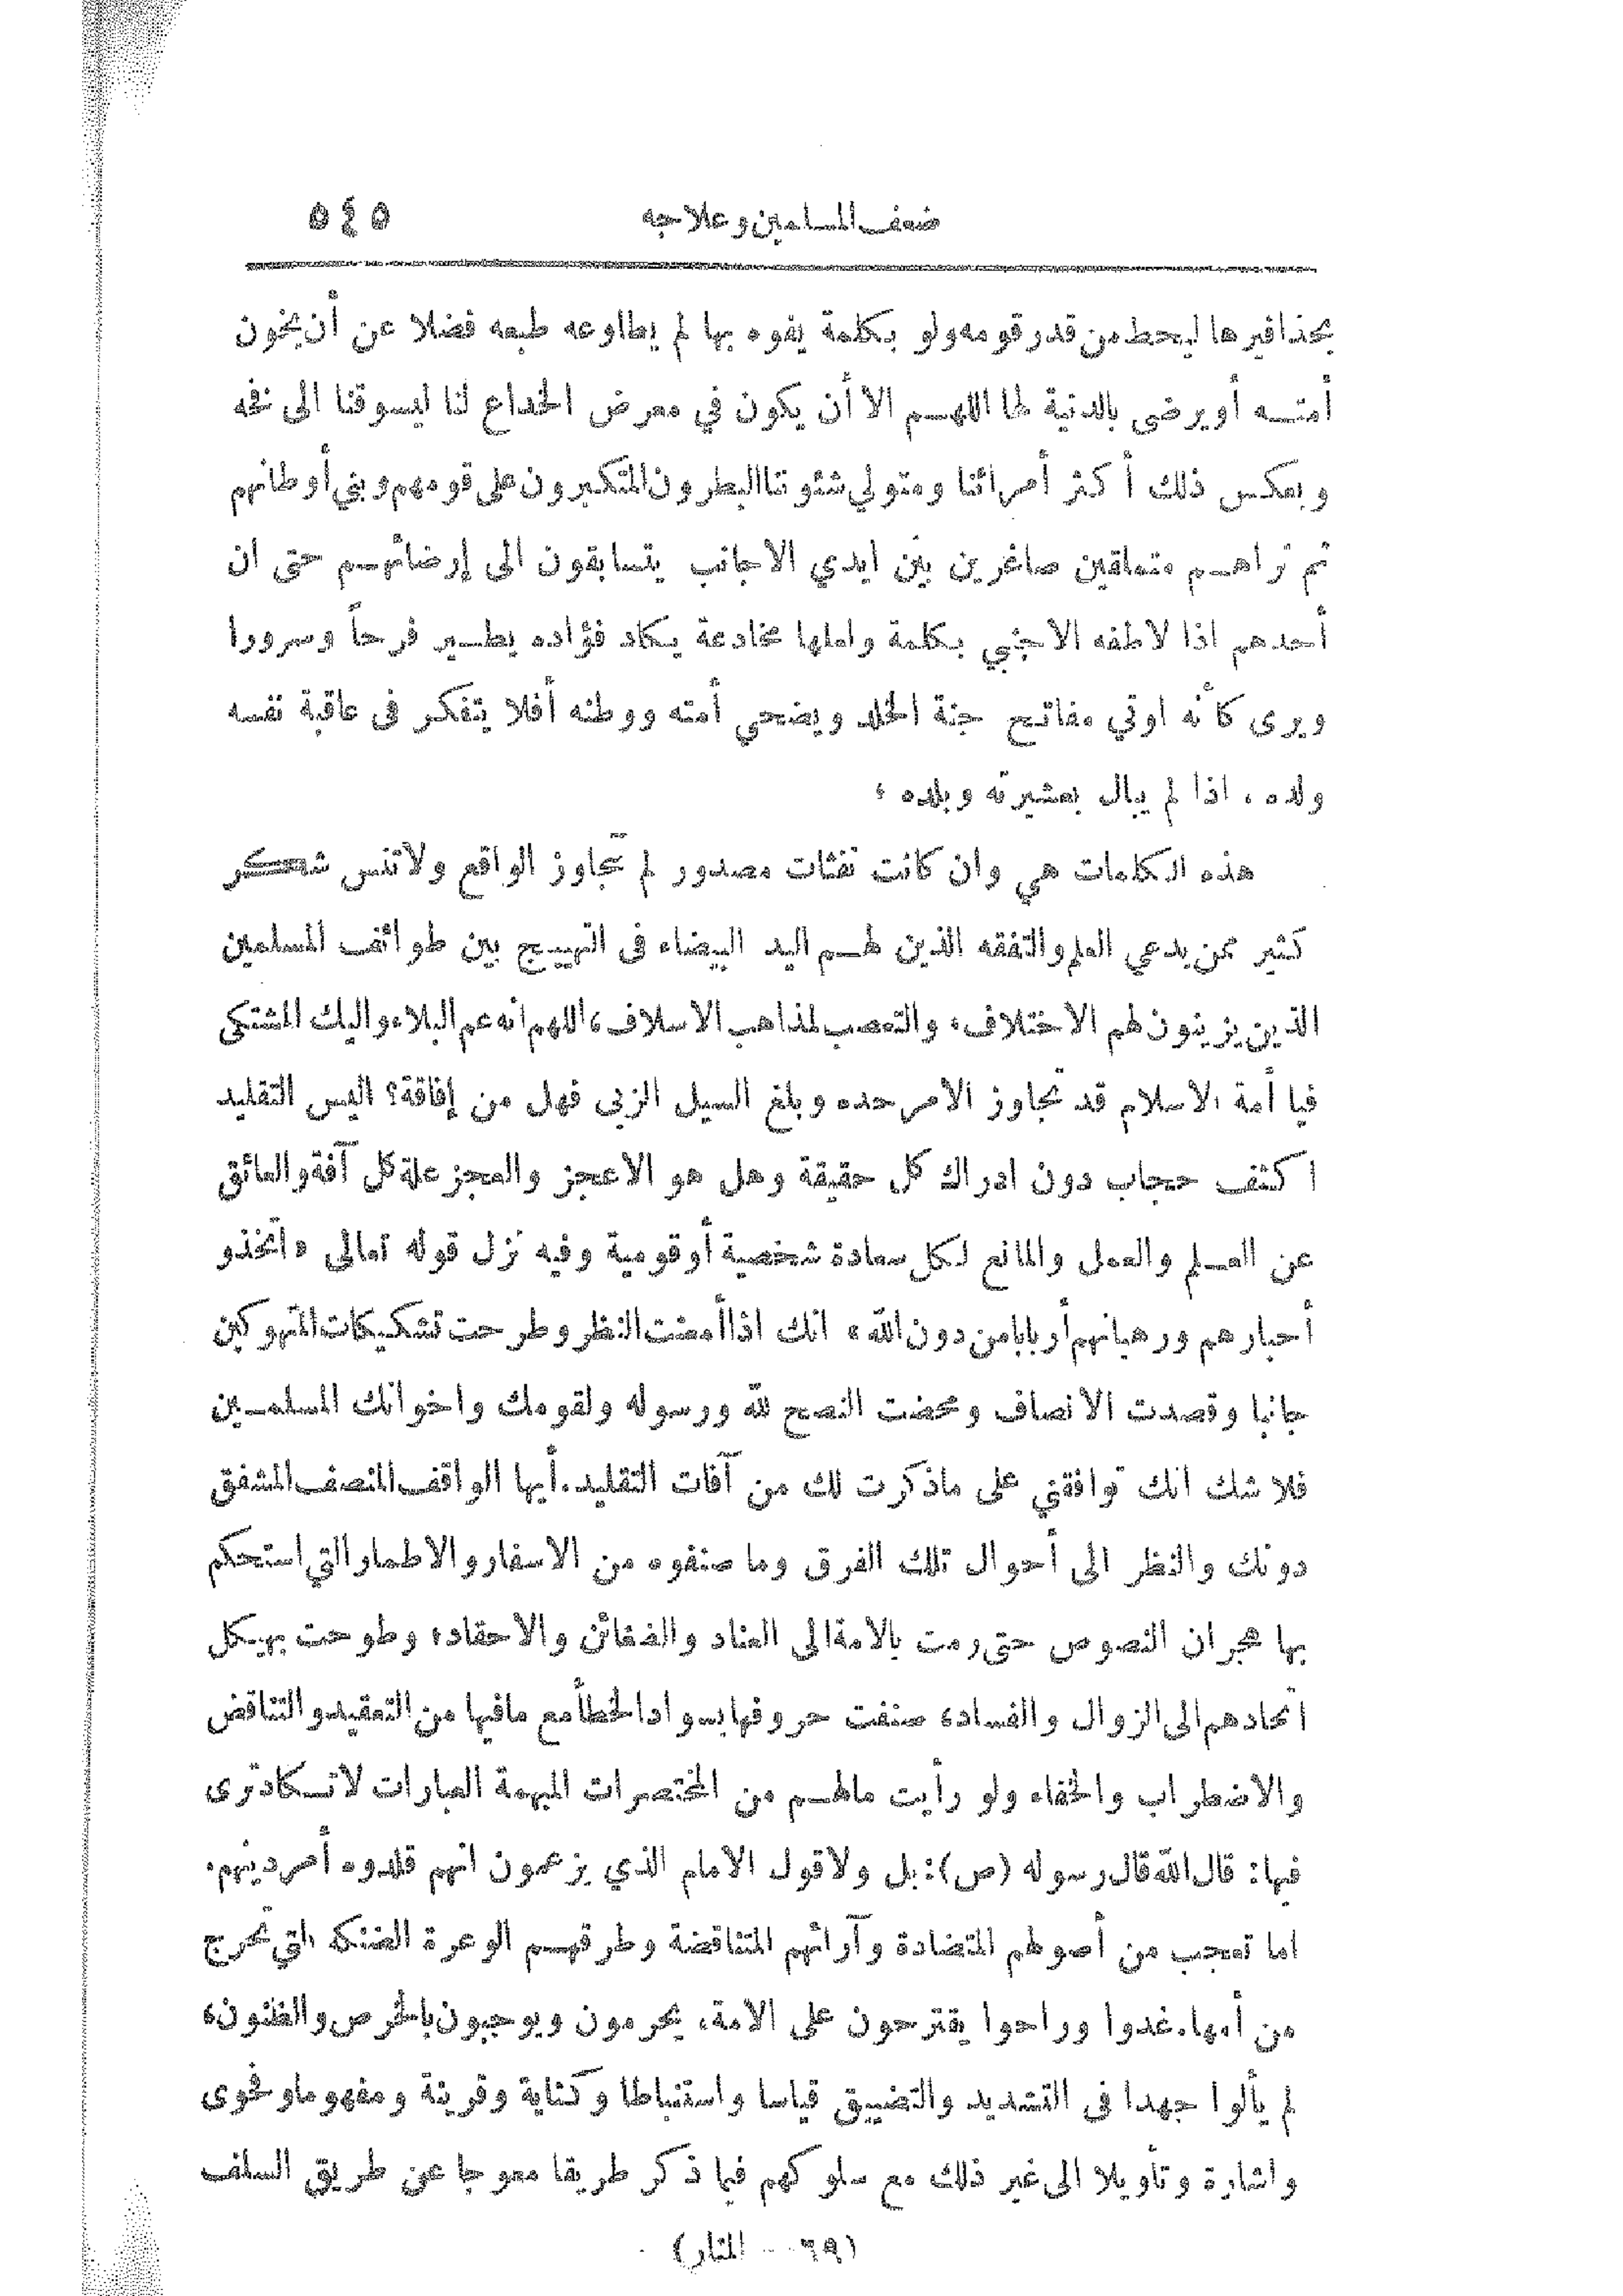 ضعف المسلمين وعلاجه ٥٤٥
بحذافيرها ليحط من قدر قومه ولو بكلمة يفوه بها لم يطاوعه طبعه فضلا عن أن يخون
أمتـه أو يرضى بالدنية لها اللهـم الا أن يكون في معرض الخداع لنا ليسوقنا الى فخه
وبعكس ذلك أكثر أمرائنا ومتولي شئوننا البطرون المتكبرون على قومهم وبني أوطانهم
ثم تراهـم متملقين صاغرين بين ايدي الاجانب يتسابقون الى إرضائهـم حتى ان
أحدهم اذا لاطفه الاجنبي بكلمة ولعلها مخادعة يكاد فؤاده يطـير فرحاً وسرورا
ويرى كأنه اوتي مفاتح جنة الخلد ويضحي أمته ووطنه أفلا يتفكر فى عاقبة نفسه
ولده ، اذا لم يبال بعشيرته وبلده ؛
هذه الكلمات هي وان كانت نفثات مصدور لم تتجاوز الواقع ولا تنس شكر
كثير ممن يدعي العلم والتفقه الذين لهـم اليد البيضاء فى التهييج بين طوائف المسلمين
الذين يزينون لهم الاختلاف، والتعصب لمذاهب الاسلاف، اللهم انه عم البلاء واليك المشتكى
فيا أمة الاسلام قد تجاوز الامر حده وبلغ السيل الزبى فهل من إفاقة؟ اليس التقليد
اكثف حجاب دون ادراك كل حقيقة وهل هو الا عجز والعجز علة كل آفة والعائق
عن العـلم والعمل والمانع لكل سعادة شخصية أو قومية وفيه نزل قوله تعالى «اتخذو
أحبارهم ورهبانهم أربابا من دون الله» انك اذا أمعنت النظر وطرحت تشكيكات المتهوكين
جانبا وقصدت الانصاف ومحضت النصح لله ورسوله ولقومك واخوانك المسلمـين
فلا شك انك توافقني على ما ذكرت لك من آفات التقليد. أيها الواقف المنصف المشفق
دونك والنظر الى أحوال تلك الفرق وما صنفوه من الاسفار والاطمار التي استحكم
بها هجران النصوص حتى رمت بالامة الى العناد والضغائن والاحقاد، وطوحت بهيكل
اتحادهم الى الزوال والفساد، صنفت حروفها بسواد الخطأ مع ما فيها من التعقيد والتناقض
والاضطراب والخفاء ولو رأيت ما لهـم من المختصرات المبهمة العبارات لا تـكاد ترى
فيها: قال الله قال رسوله (ص): بل ولا قول الامام الذي يزعمون انهم قلدوه أمر دينهم.
اما تعجب من أصولهم المتضادة وآرائهم المتناقضة وطرقهـم الوعرة الضنكه التي تخرج
من أمها. غدوا وراحوا يقترحون على الامة، يحرمون ويوجبون بالخرص والظنون،
لم يألوا جهدا فى التشديد والتضييق قياسا واستنباطا وكناية وقرينة ومفهوما وفحوى
واشارة وتأويلا الى غير ذلك مع سلوكهم فيما ذكر طريقا معوجا عن طريق السلف
(٦٩ -- المنار)